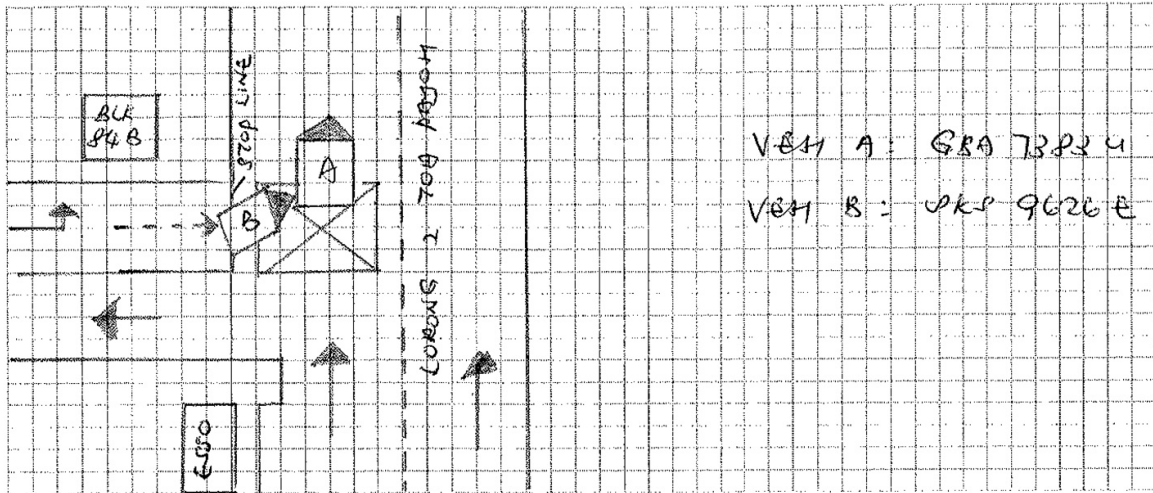 BLK
84B
STOP LINE
A
B
LORONG 2 TOA PAYOH
ESSO
VEH A: GBA 7383 U
VEH B: SKS 9626 E